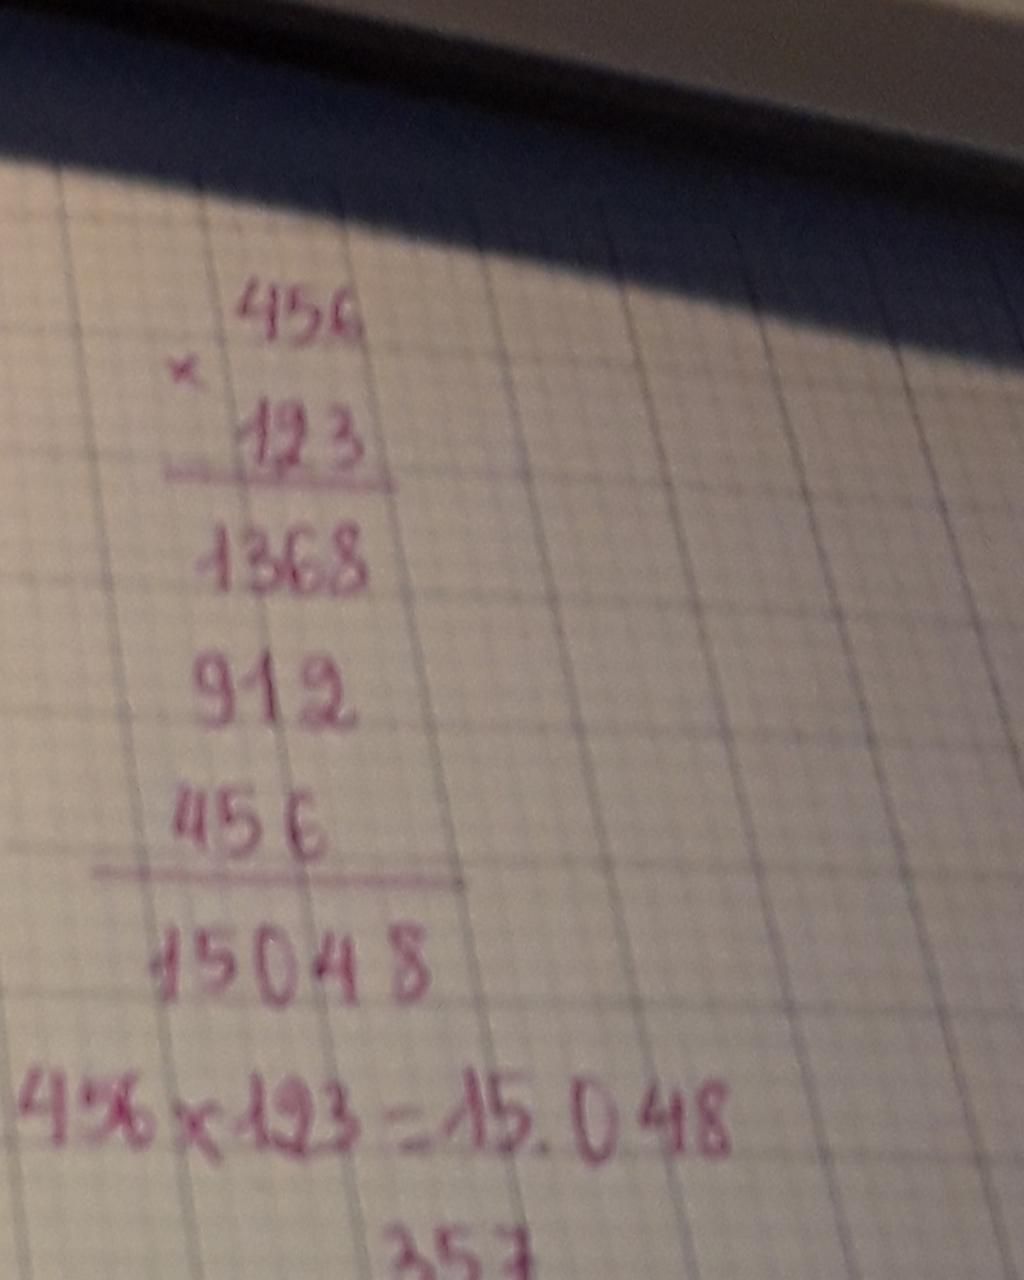 456
×
123
1368
912
456
15048
456 × 123 = 15.048
357